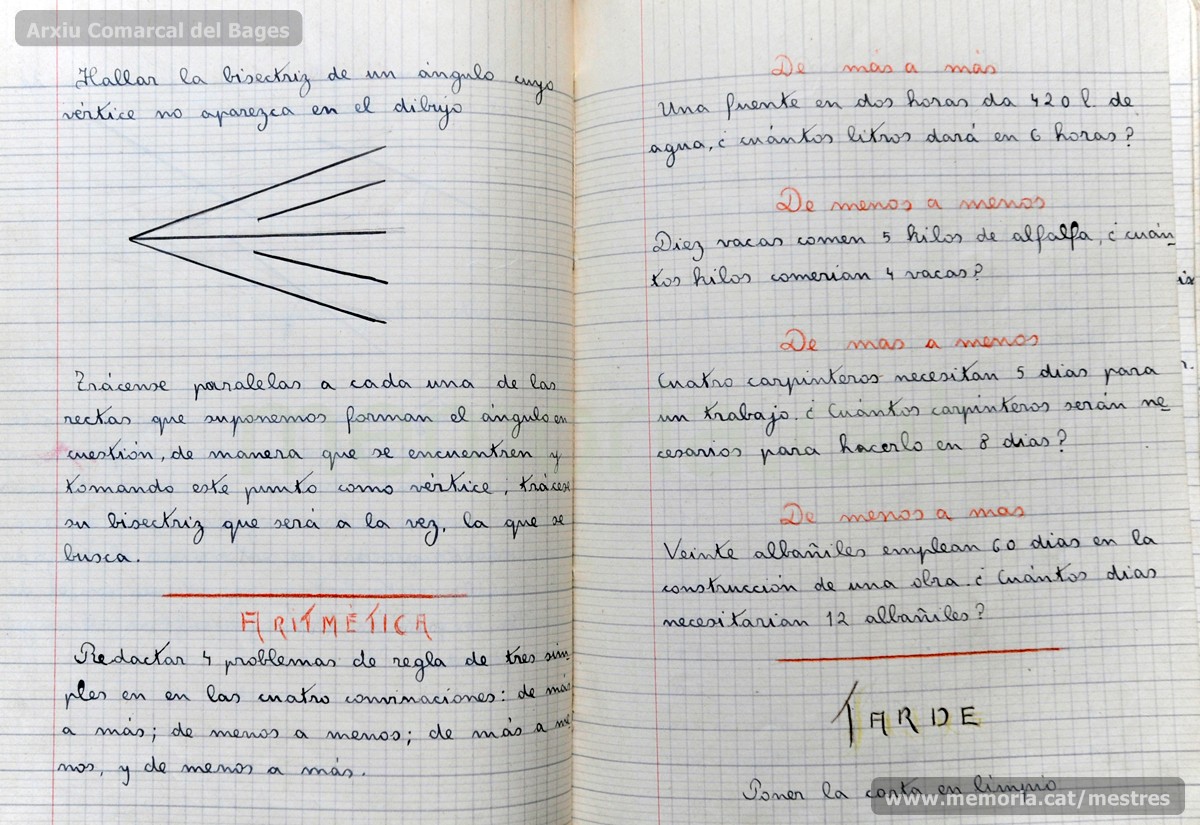 Arxiu Comarcal del Bages
Hallar la bisectriz de un ángulo cuyo
vértice no aparezca en el dibujo
Trácense paralelas a cada una de las
rectas que suponemos forman el ángulo en
cuestión, de manera que se encuentren y
tomando este punto como vértice, trácese
su bisectriz que será a la vez, la que se
busca.
ARITMÉTICA
Redactar 4 problemas de regla de tres sim-
ples en en las cuatro convinaciones: de más
a más; de menos a menos; de más a me
nos, y de menos a más.
De más a más
Una fuente en dos horas da 420 l. de
agua, ¿cuántos litros dará en 6 horas?
De menos a menos
Diez vacas comen 5 kilos de alfalfa, ¿cuán-
tos kilos comerian 4 vacas?
De mas a menos
Cuatro carpinteros necesitan 5 dias para
un trabajo. ¿Cuántos carpinteros serán ne-
cesarios para hacerlo en 8 dias?
De menos a mas
Veinte albañiles emplean 60 dias en la
construcción de una obra. ¿Cuántos dias
necesitarian 12 albañiles?
TARDE
Poner la carta en limpio
www.memoria.cat/mestres